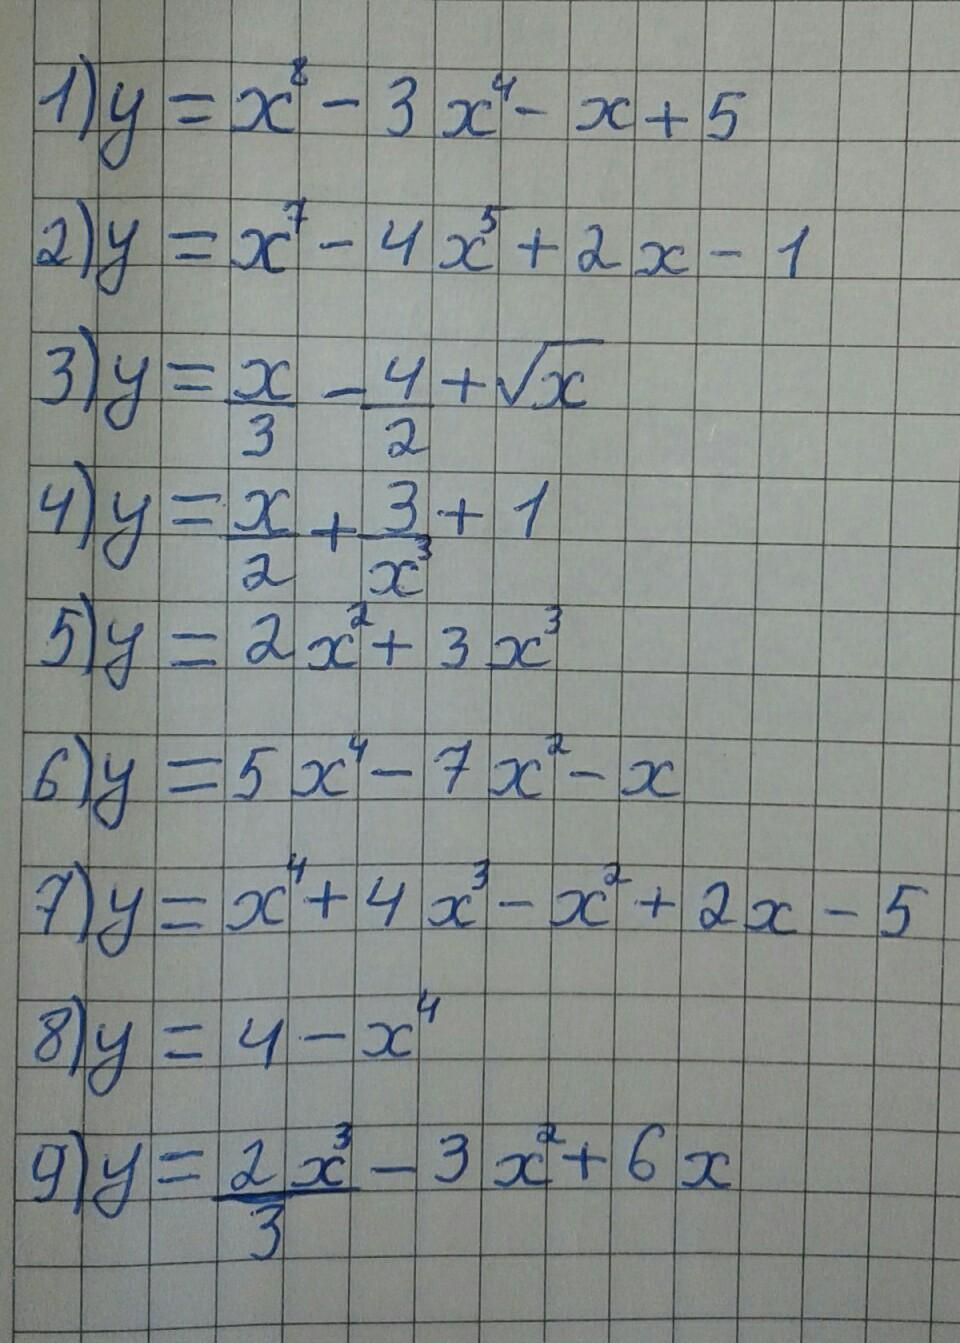 1) y = x⁸ - 3x⁴ - x + 5
2) y = x⁷ - 4x⁵ + 2x - 1
3) y = x/3 - 4/2 + √x
4) y = x/2 + 3/x³ + 1
5) y = 2x² + 3x³
6) y = 5x⁴ - 7x² - x
7) y = x⁴ + 4x³ - x² + 2x - 5
8) y = 4 - x⁴
9) y = 2x³/3 - 3x² + 6x